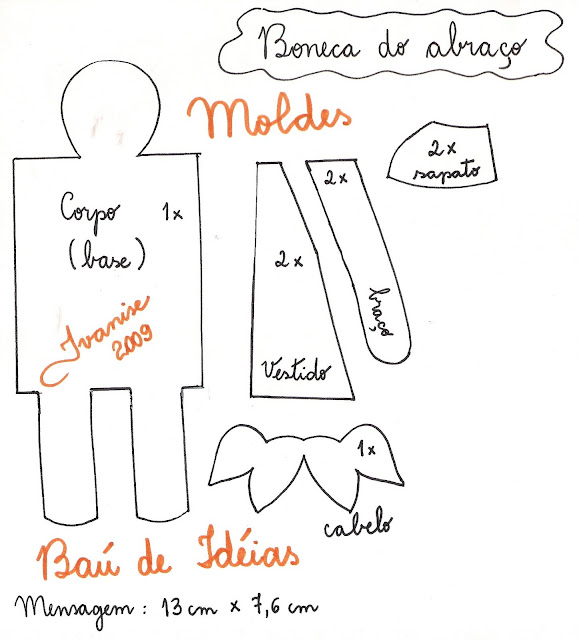 Boneca do abraço
Moldes
2x
sapato
2x
Corpo 1x
(base)
2x
braço
Ivanise
2009
Vestido
1x
cabelo
Baú de Idéias
Mensagem : 13 cm x 7,6 cm